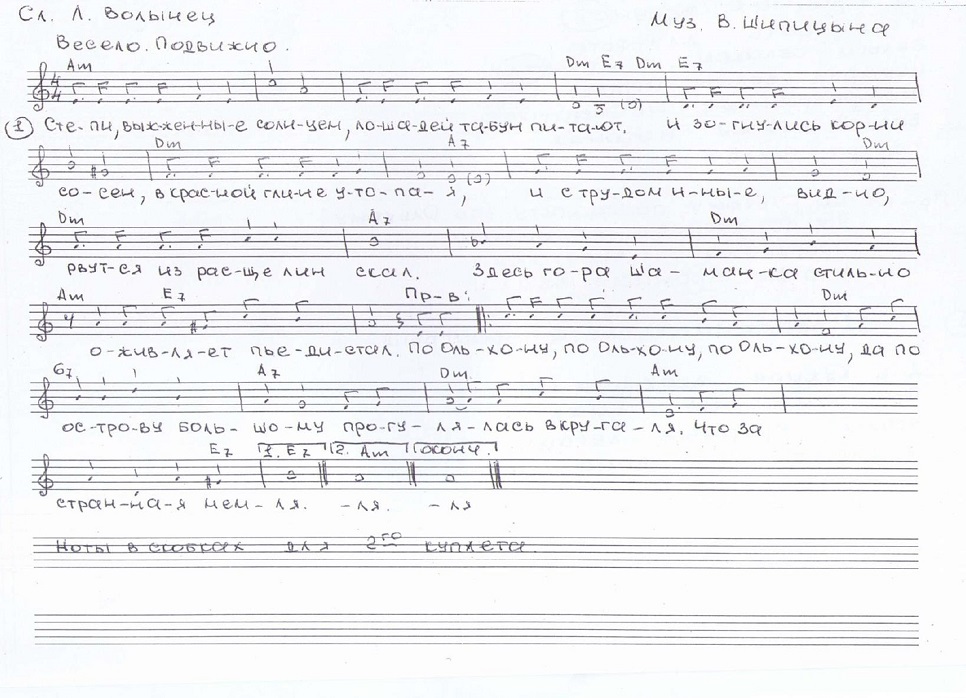 Сл. Л. Волынец
Муз. В. Шипицына
Весело. Подвижно.
Am Dm E7 Dm E7
4/4
① Сте-пи, выж-жен-ны-е солн-цем, ло-ша-дей та-бун пи-та-ют. И зо-гну-лись кор-ни
Dm A7 Dm
со-сен, в крас-ной гли-не у-то-па-я, и с тру-дом и-ны-е, вид-но,
Dm A7 Dm
рвут-ся из рас-ще лин скал. Здесь го-ра ша-ман-ка стиль-но
Am E7 Пр-в: Dm
о-жив-ля-ет пье-ди-стал. По Оль-хо-ну, по Оль-хо-ну, по Оль-хо-ну, да по
G7 A7 Dm Am
ос-тро-ву боль-шо-му про-гу-ля-лась вкру-га-ля. Что за
E7 1. E7 2. Am Оконч.
стран-на-я зем-ля. -ля. -ля
Ноты в скобках для 2го куплета.